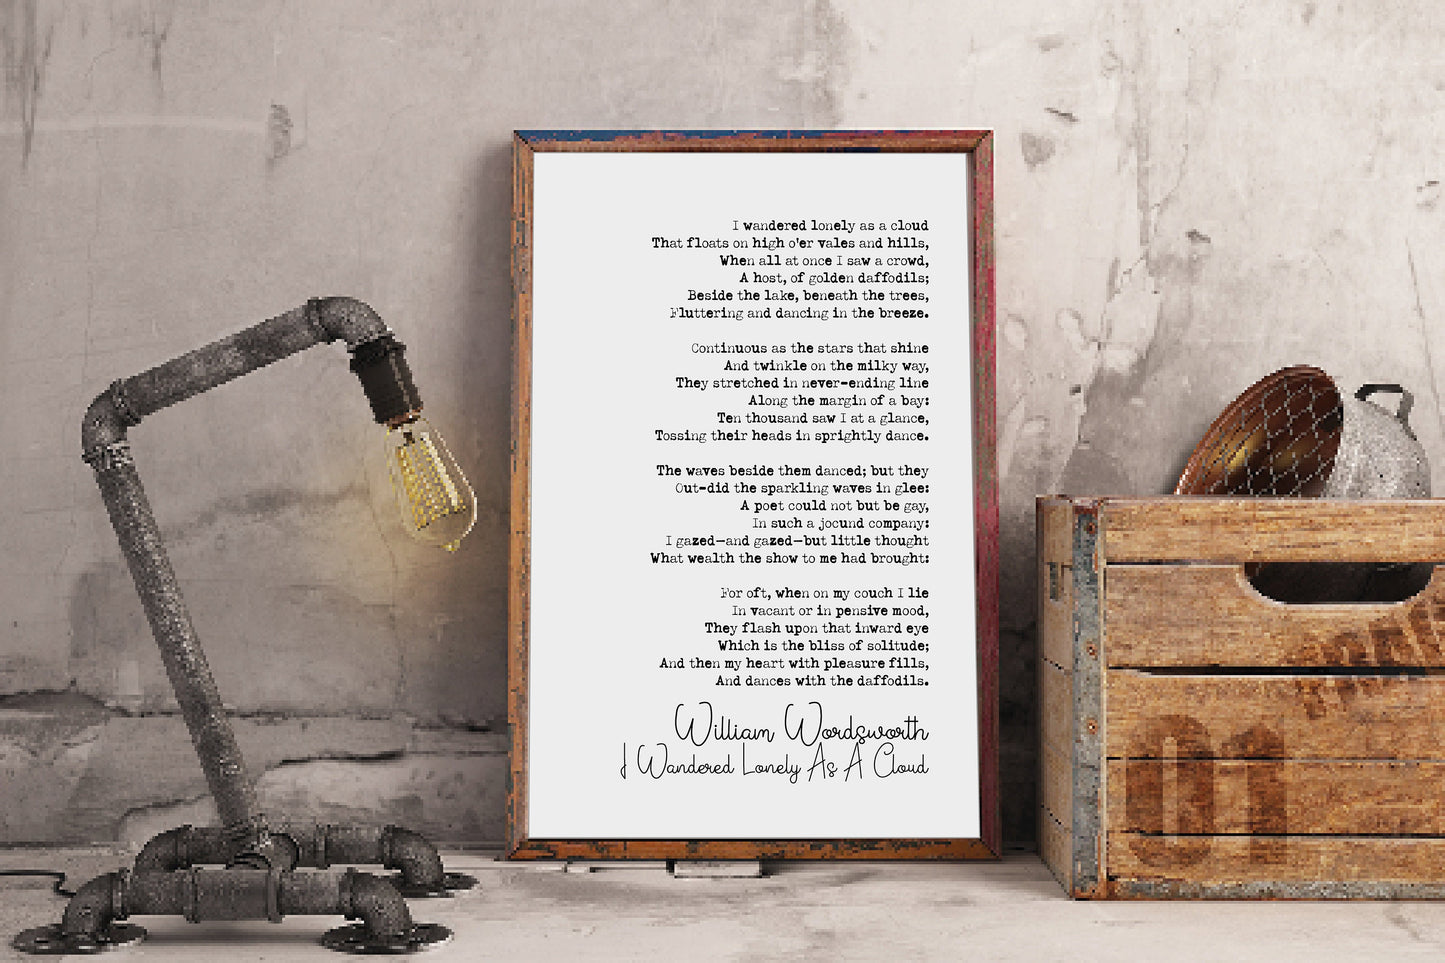 I wandered lonely as a cloud
That floats on high o'er vales and hills,
When all at once I saw a crowd,
A host, of golden daffodils;
Beside the lake, beneath the trees,
Fluttering and dancing in the breeze.
Continuous as the stars that shine
And twinkle on the milky way,
They stretched in never-ending line
Along the margin of a bay:
Ten thousand saw I at a glance,
Tossing their heads in sprightly dance.
The waves beside them danced; but they
Out-did the sparkling waves in glee:
A poet could not but be gay,
In such a jocund company:
I gazed—and gazed—but little thought
What wealth the show to me had brought:
For oft, when on my couch I lie
In vacant or in pensive mood,
They flash upon that inward eye
Which is the bliss of solitude;
And then my heart with pleasure fills,
And dances with the daffodils.
William Wordsworth
I Wandered Lonely As A Cloud
01